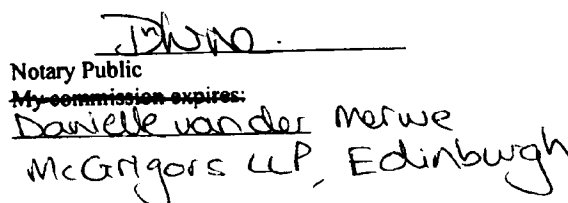 Notary Public
My commission expires:
Danielle van der Merwe
McGrigors LLP, Edinburgh